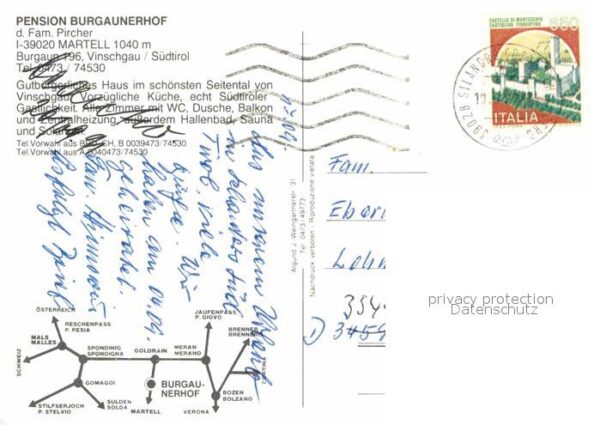 PENSION BURGAUNERHOF
d. Fam. Pircher
I-39020 MARTELL 1040 m
Burgaun 196, Vinschgau / Südtirol
Tel. 0473 / 74530
Gutbürgerliches Haus im schönsten Seitental von
Vinschgau. Vorzügliche Küche, echt Südtiroler
Gastlichkeit. Alle Zimmer mit WC, Dusche, Balkon
und Zentralheizung, außerdem Hallenbad, Sauna
und Solarium.
Tel.Vorwahl aus BRD, CH, B 0039473/74530
Tel.Vorwahl aus A 040473/74530
Aus unserem Urlaub
im schönen Süd
Tirol viele
Grüße. Wir
haben am 04.04.
geheiratet.
Algund J. Weingartnerstr. 37
Tel. 0473 49773
Nachdruck verboten - Riproduzione vietata
CASTELLO DI MONTECCHIO
CASTIGLION FIORENTINO
650
ITALIA
39028 SILANDRO
Fam.
Eber
Lohn
354
D 3459
privacy protection
Datenschutz
ÖSTERREICH
RESCHENPASS
P. RESIA
MALS
MALLES
SCHWEIZ
SPONDINIG
SPONDIGNA
GOMAGOI
STILFSERJOCH
P. STELVIO
SULDEN
SOLDA
GOLDRAIN
BURGAU-
NERHOF
MARTELL
MERAN
MERANO
JAUFENPASS
P. GIOVO
BRENNER
BRENNERO
CORTINA
BOZEN
BOLZANO
VERONA